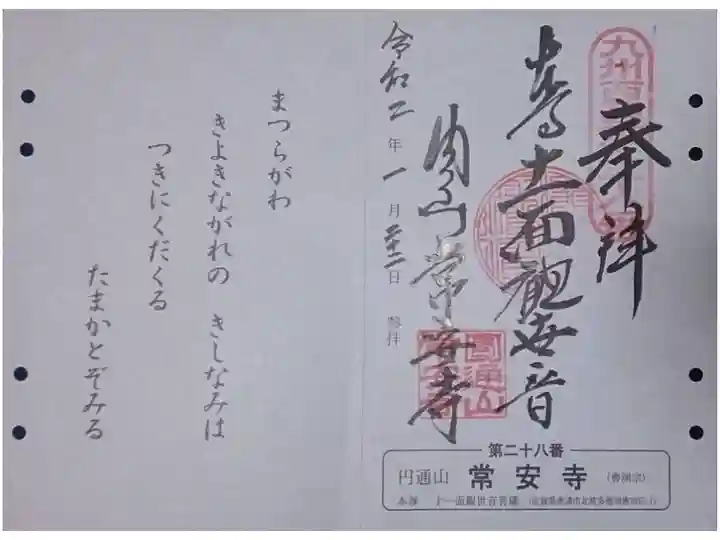 奉拝
十一面観世音
円通山 常安寺
令和二年一月二十一日 参拝
第二十八番
円通山 常安寺 (曹洞宗)
本尊 十一面観世音菩薩
まつらがわ
きよきながれの きしなみは
つきにくだくる
たまかとぞみる